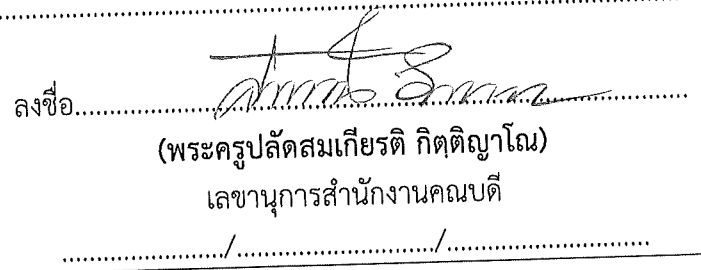 ลงชื่อ
(พระครูปลัดสมเกียรติ กิตฺติญาโณ)
เลขานุการสำนักงานคณบดี
/ /